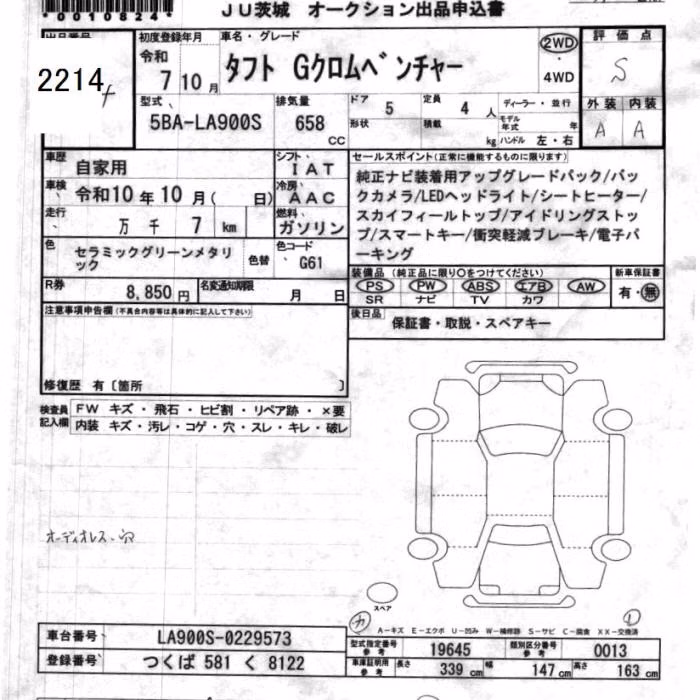 *0010824*
JU茨城 オークション出品申込書
出品番号
2214
初度登録年月
令和
7 10 月
車名・グレード
タフト Gクロムベンチャー
2WD
・
4WD
評価点
S
外装 内装
A A
型式
5BA-LA900S
排気量
658
CC
ドア
5
定員
4 人
形状
積載
kg
ディーラー・並行
モデル年式 年
ハンドル 左・右
車歴
自家用
シフト
IAT
車検
令和10 年 10 月( 日)
冷房
AAC
走行
万 千 7 km
燃料
ガソリン
色
セラミックグリーンメタリック
色替
色コード
G61
R券
8,850 円
名変通知期限
月 日
セールスポイント(正常に機能するものに限ります)
純正ナビ装着用アップグレードパック/バッ
クカメラ/LEDヘッドライト/シートヒーター/
スカイフィールトップ/アイドリングストッ
プ/スマートキー/衝突軽減ブレーキ/電子パ
ーキング
装備品 (純正品に限り○をつけてください)
PS PW ABS エアB AW
SR ナビ TV カワ
新車保証書
有・無
後日品
保証書・取説・スペアキー
注意事項申告欄(不具合内容等は具体的に記入して下さい)
修復歴 有〔箇所 〕
検査員
記入欄
FW キズ・飛石・ヒビ割・リペア跡・×要
内装 キズ・汚レ・コゲ・穴・スレ・キレ・破レ
オーディオレス・穴
スペア
A-キズ E-エクボ U-凹み W-補修跡 S-サビ C-腐食 XX-交換済
車台番号
LA900S-0229573
登録番号
つくば 581 く 8122
型式指定番号
参考
19645
類別区分番号
参考
0013
車庫証明用
参考
長さ
339 cm
幅
147 cm
高さ
163 cm